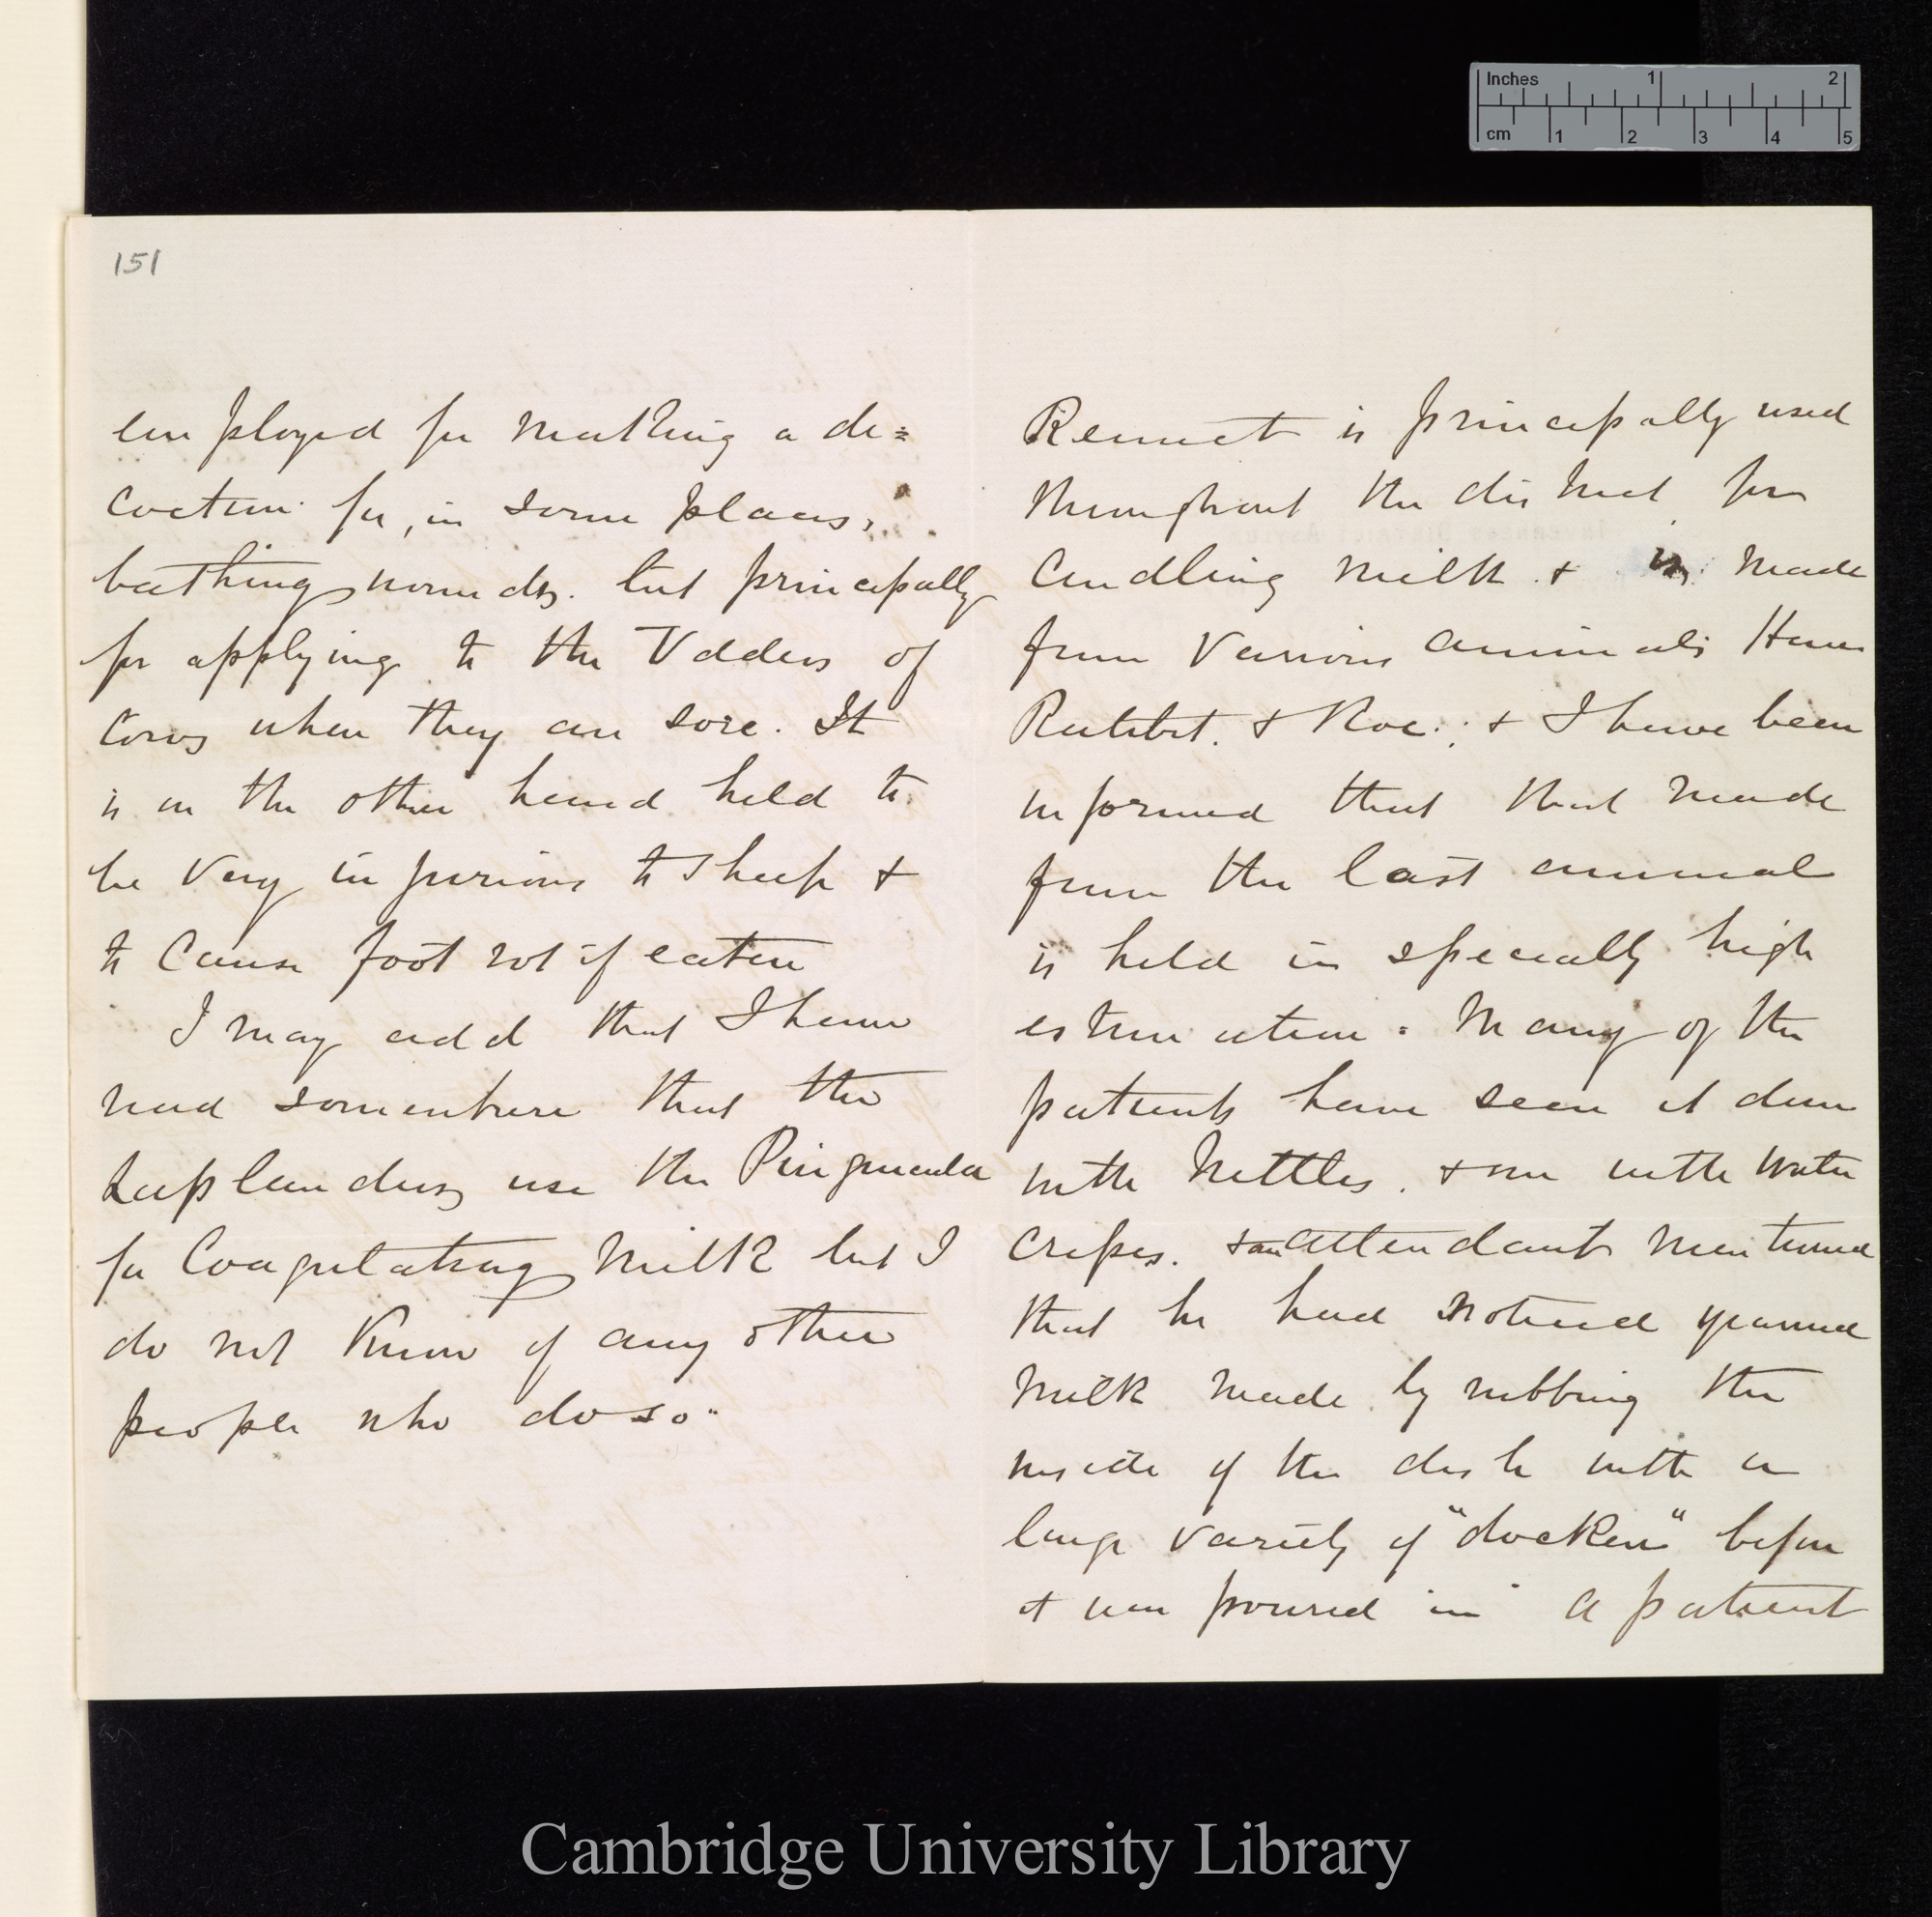 Inches 1 2
cm 1 2 3 4 5
151
employed for making a de=
coction for, in some places,
bathing wounds. but principally
for applying to the Udders of
Cows when they are sore. It
is on the other hand held to
be very injurious to sheep &
to cause foot rot if eaten
I may add that I have
read somewhere that the
Laplanders use the Pinguicula
for Coagulating Milk but I
do not know of any other
people who do so"
Rennet is principally used
throughout the district for
Curdling Milk & is made
from various animals Hare
Rabbit. & Roe.; & I have been
informed that that made
from the last animal
is held in specially high
estimation. Many of the
patients have seen it done
with Nettles. & one with Water
Cresses. & an attendant mentioned
that he had noticed yearned
Milk made by rubbing the
inside of the dish with a
large variety of "docken" before
it was poured in A patient
Cambridge University Library